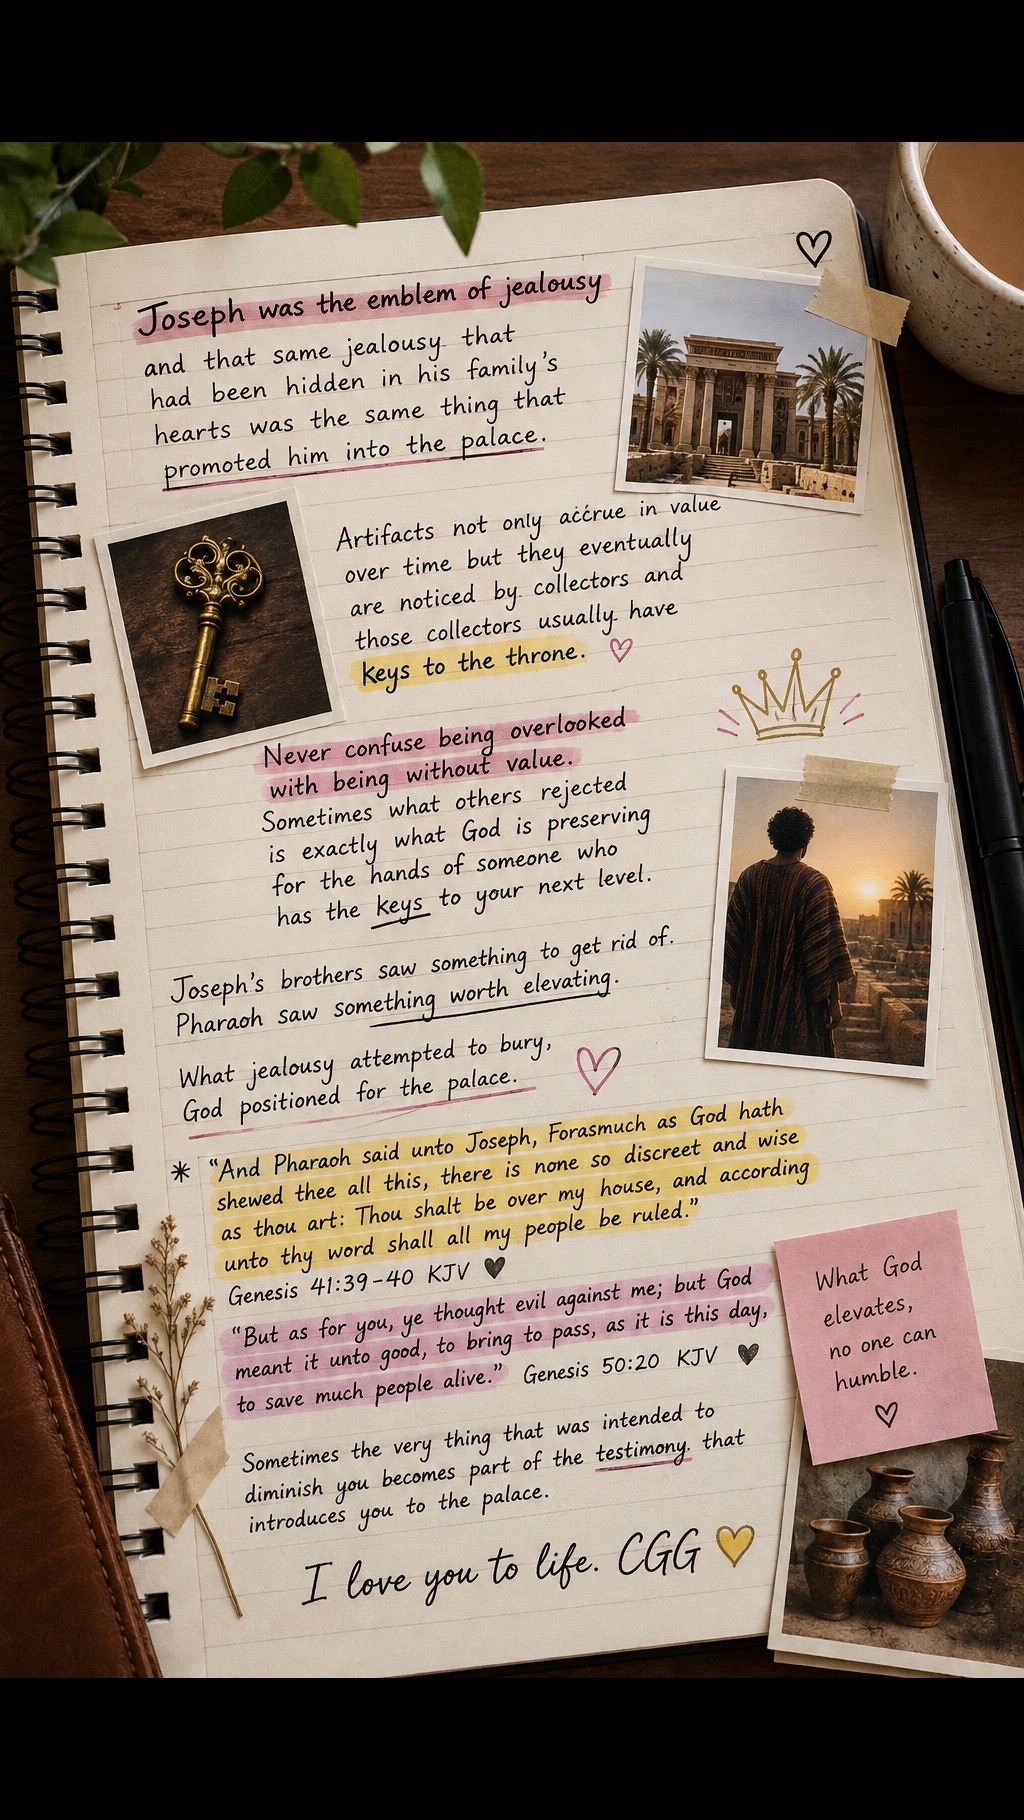 Joseph was the emblem of jealousy
and that same jealousy that
had been hidden in his family's
hearts was the same thing that
promoted him into the palace.
Artifacts not only accrue in value
over time but they eventually
are noticed by collectors and
those collectors usually have
keys to the throne.
Never confuse being overlooked
with being without value.
Sometimes what others rejected
is exactly what God is preserving
for the hands of someone who
has the keys to your next level.
Joseph's brothers saw something to get rid of.
Pharaoh saw something worth elevating.
What jealousy attempted to bury,
God positioned for the palace.
* "And Pharaoh said unto Joseph, Forasmuch as God hath
shewed thee all this, there is none so discreet and wise
as thou art: Thou shalt be over my house, and according
unto thy word shall all my people be ruled."
Genesis 41:39-40 KJV
"But as for you, ye thought evil against me; but God
meant it unto good, to bring to pass, as it is this day,
to save much people alive." Genesis 50:20 KJV
What God
elevates,
no one can
humble.
Sometimes the very thing that was intended to
diminish you becomes part of the testimony. that
introduces you to the palace.
I love you to life. CGG